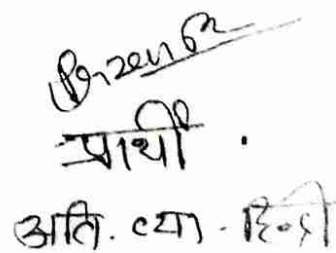 प्रार्थी .
अति. व्या. हिन्दी